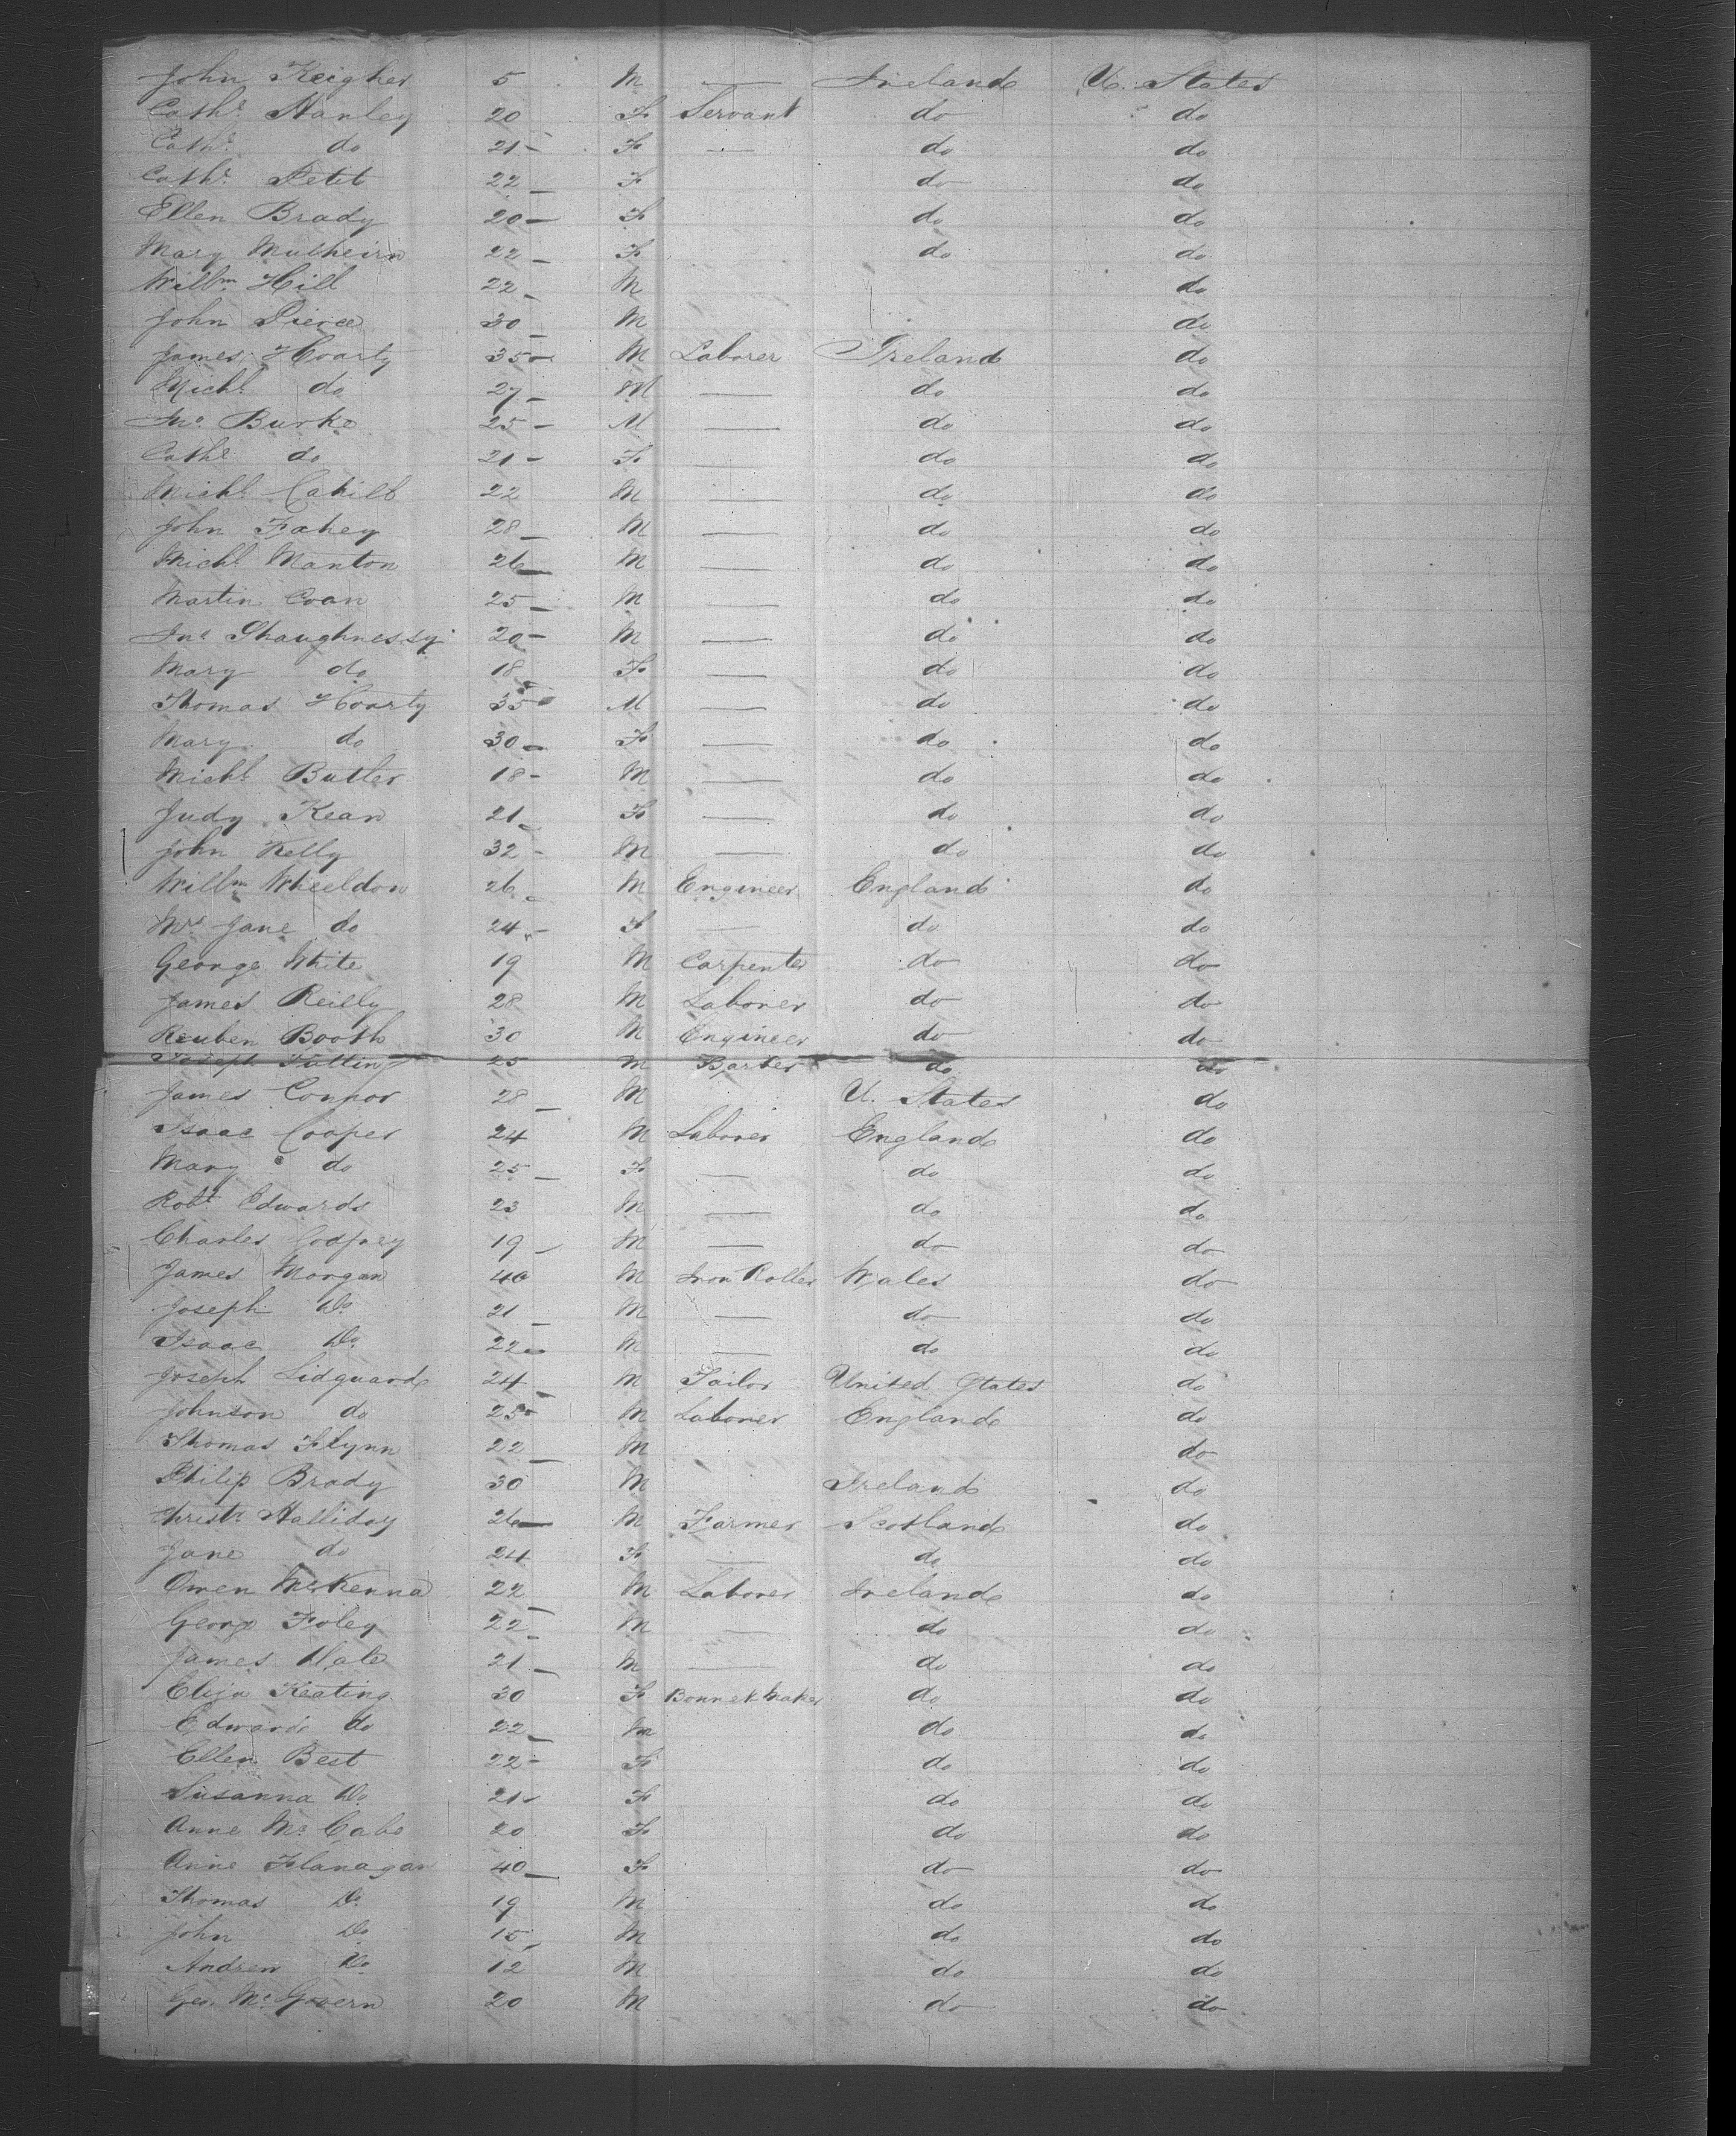 John Keigher 5 M — Ireland U. States
Cathe Hanley 20 F Servant do do
Cathe do 21 F — do do
Cathe Petit 22 F do do
Ellen Brady 20 F do do
Mary Mulheirn 22 F do do
Willm Hill 22 M do
John Pierce 30 M do
James Hoarty 35 M Laborer Ireland do
Michl do 27 M — do do
Jno Burke 25 M — do do
Cathe do 21 F — do do
Michl Cahill 22 M — do do
John Fahey 28 M — do do
Michl Manton 26 M — do do
Martin Coan 25 M — do do
Jno Shaughnessy 20 M — do do
Mary do 18 F — do do
Thomas Hoarty 35 M — do do
Mary do 30 F — do do
Michl Butler 18 M — do do
Judy Kean 21 F — do do
John Kelly 32 M — do do
Willm Wheeldon 26 M Engineer England do
Mrs Jane do 24 F — do do
George White 19 M Carpenter do do
James Reilly 28 M Laborer do do
Reuben Booth 30 M Engineer do do
Joseph 25 M Barber do do
James Connor 28 M U. States do
Isaac Cooper 24 M Laborer England do
Mary do 25 F — do do
Robt Edwards 23 M — do do
Charles Godfrey 19 M — do do
James Morgan 40 M Iron Roller Wales do
Joseph Do 21 M — do do
Isaac Do 22 M — do do
Joseph Lidguard 24 M Tailor United States do
Johnson do 25 M Laborer England do
Thomas Flynn 22 M do
Philip Brady 30 M Ireland do
Christr Halliday 26 M Farmer Scotland do
Jane do 24 F — do do
Owen McKenna 22 M Laborer Ireland do
George Foley 22 M — do do
James Dale 21 M — do do
Eliza Keating 30 F Bonnet Maker do do
Edward do 22 M do do
Ellen Best 22 F do do
Susanna Do 21 F do do
Anne McCabe 20 F do do
Anne Flanagan 40 F do do
Thomas Do 19 M do do
John Do 15 M do do
Andrew Do 12 M do do
Geo. McGovern 20 M do do